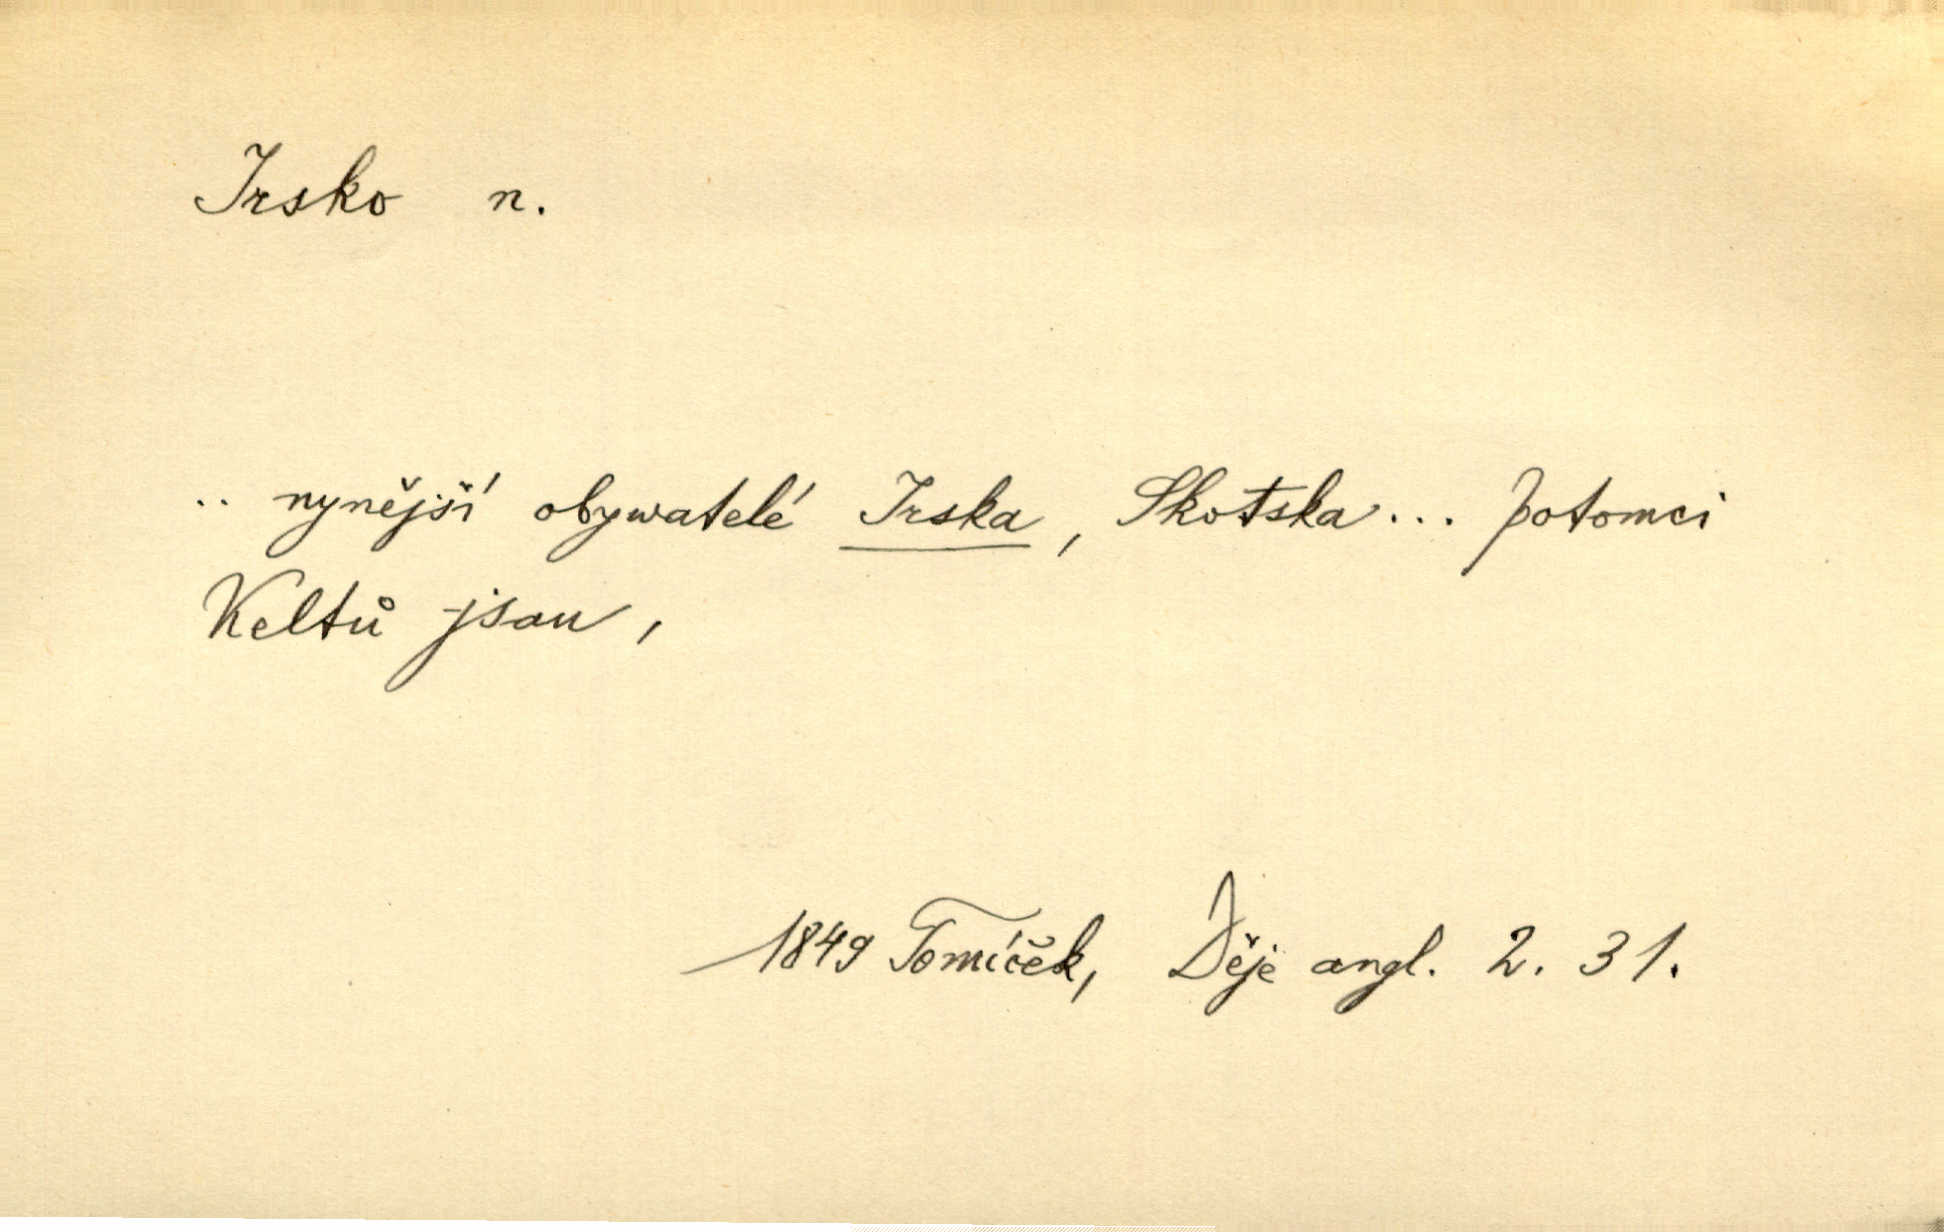 Irsko n.
.. nynější obywatelé Irska, Skotska... potomci
Keltů jsau,
1849 Tomíček, Děje angl. 2. 31.